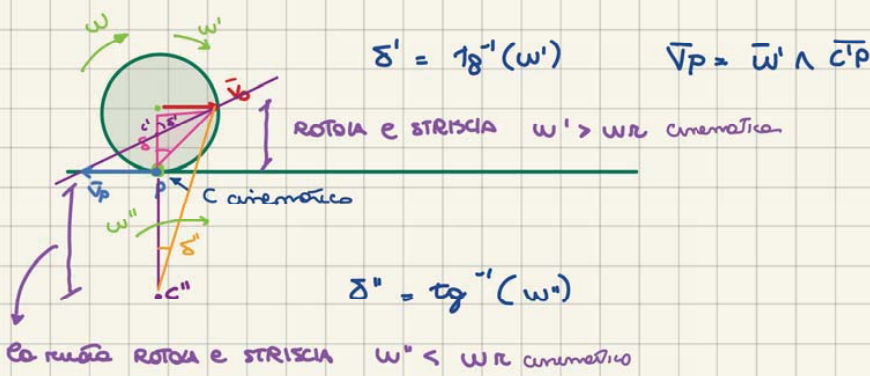 ω ω'
δ' = tg⁻¹(ω') V̄p = ω̄' ∧ C'P
V̄o
C' δ'
δ
ROTOLA e STRISCIA ω' > ωR cinematica
V̄p P C cinematico
ω" δ"
C"
δ" = tg⁻¹(ω")
la ruota ROTOLA e STRISCIA ω" < ωR cinematico